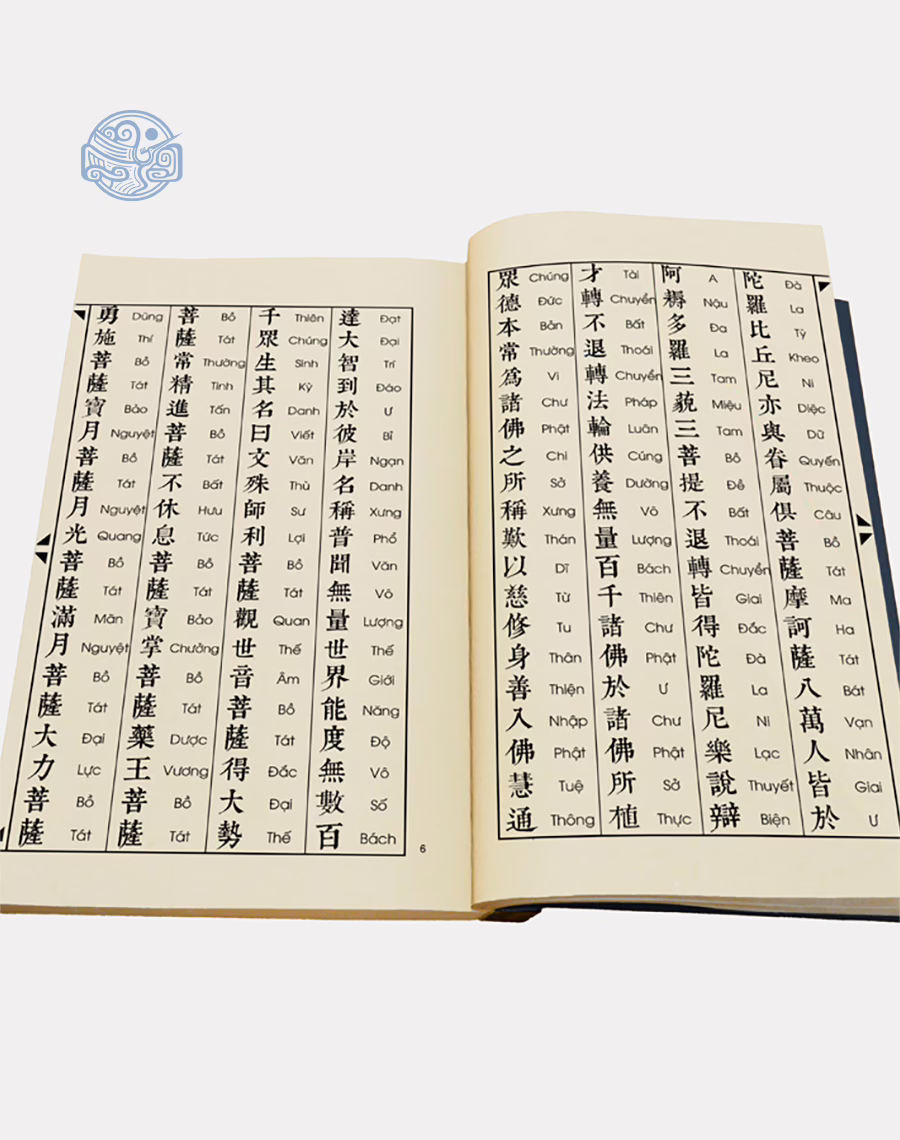 陀羅比丘尼亦與眷屬俱菩薩摩訶薩八萬人皆於
Đà La Tỳ Kheo Ni Diệc Dữ Quyến Thuộc Câu Bồ Tát Ma Ha Tát Bát Vạn Nhân Giai Ư
阿耨多羅三藐三菩提不退轉皆得陀羅尼樂說辯
A Nậu Đa La Tam Miệu Tam Bồ Đề Bất Thoái Chuyển Giai Đắc Đà La Ni Lạc Thuyết Biện
才轉不退轉法輪供養無量百千諸佛於諸佛所植
Tài Chuyển Bất Thoái Chuyển Pháp Luân Cúng Dường Vô Lượng Bách Thiên Chư Phật Ư Chư Phật Sở Thực
眾德本常爲諸佛之所稱歎以慈修身善入佛慧通
Chúng Đức Bản Thường Vi Chư Phật Chi Sở Xưng Thán Dĩ Từ Tu Thân Thiện Nhập Phật Tuệ Thông
達大智到於彼岸名稱普聞無量世界能度無數百
Đạt Đại Trí Đáo Ư Bỉ Ngạn Danh Xưng Phổ Văn Vô Lượng Thế Giới Năng Độ Vô Số Bách
千眾生其名曰文殊師利菩薩觀世音菩薩得大勢
Thiên Chúng Sinh Kỳ Danh Viết Văn Thù Sư Lợi Bồ Tát Quan Thế Âm Bồ Tát Đắc Đại Thế
菩薩常精進菩薩不休息菩薩寶掌菩薩藥王菩薩
Bồ Tát Thường Tinh Tấn Bồ Tát Bất Hưu Tức Bồ Tát Bảo Chưởng Bồ Tát Dược Vương Bồ Tát
勇施菩薩寶月菩薩月光菩薩滿月菩薩大力菩薩
Dũng Thí Bồ Tát Bảo Nguyệt Bồ Tát Nguyệt Quang Bồ Tát Mãn Nguyệt Bồ Tát Đại Lực Bồ Tát
6